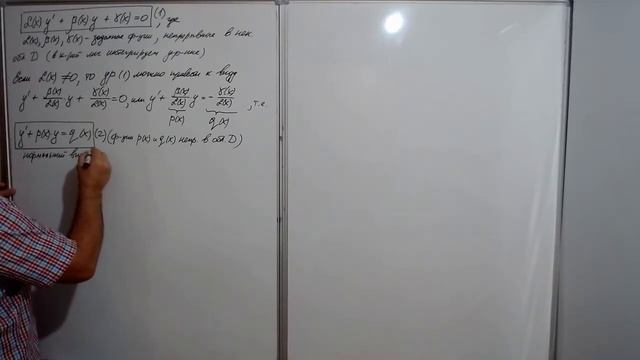 α(x) y' + β(x) y + γ(x) = 0 (1), где
α(x), β(x), γ(x) - заданные ф-ции, непрерывные в нек
обл D (в к-рой мы интегрируем ур-ние)
Если α(x) ≠ 0, то ур (1) можно привести к виду
y' + β(x)/α(x) y + γ(x)/α(x) = 0, или y' + β(x)/α(x) y = - γ(x)/α(x), т.е.
p(x) q(x)
y' + p(x) y = q(x) (2) (ф-ции p(x) и q(x) непр. в обл D)
нормальный ви